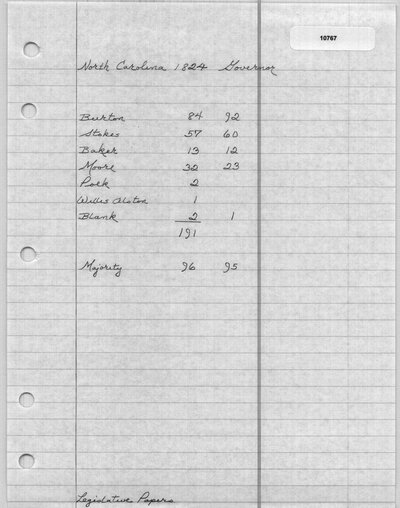 10767
North Carolina 1824 Governor
Burton 84 92
Stokes 57 60
Baker 13 12
Moore 32 23
Polk 2
Willis Alston 1
Blank 2 1
191
Majority 96 95
Legislative Papers